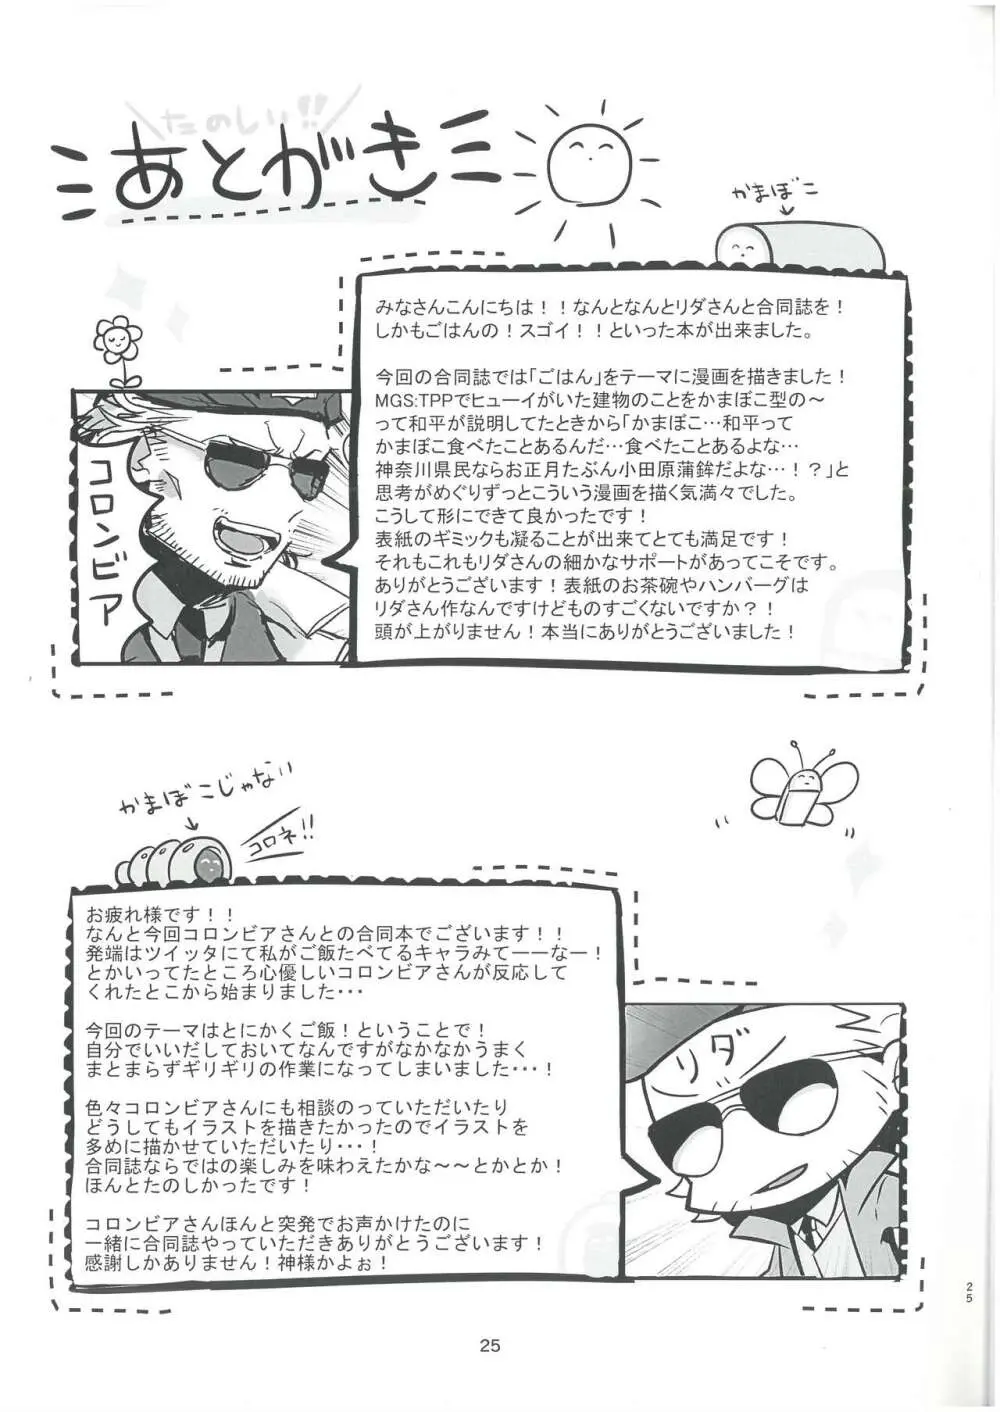 たのしい!!
あとがき
かまぼこ
みなさんこんにちは！！なんとなんとリダさんと合同誌を！
しかもごはんの！スゴイ！！といった本が出来ました。
今回の合同誌では「ごはん」をテーマに漫画を描きました！
MGS:TPPでヒューイがいた建物のことをかまぼこ型の～
って和平が説明してたときから「かまぼこ…和平って
かまぼこ食べたことあるんだ…食べたことあるよな…
神奈川県民ならお正月たぶん小田原蒲鉾だよな…！？」と
思考がめぐりずっとこういう漫画を描く気満々でした。
こうして形にできて良かったです！
表紙のギミックも凝ることが出来てとても満足です！
それもこれもリダさんの細かなサポートがあってこそです。
ありがとうございます！表紙のお茶碗やハンバーグは
リダさん作なんですけどものすごくないですか？！
頭が上がりません！本当にありがとうございました！
コロンビア
かまぼこじゃない
コロネ!!
お疲れ様です！！
なんと今回コロンビアさんとの合同本でございます！！
発端はツイッタにて私がご飯たべてるキャラみてーーなー！
とかいってたところ心優しいコロンビアさんが反応して
くれたとこから始まりました・・・
今回のテーマはとにかくご飯！ということで！
自分でいいだしておいてなんですがなかなかうまく
まとまらずギリギリの作業になってしまいました・・・！
色々コロンビアさんにも相談のっていただいたり
どうしてもイラストを描きたかったのでイラストを
多めに描かせていただいたり・・・！
合同誌ならではの楽しみを味わえたかな～～とかとか！
ほんとたのしかったです！
コロンビアさんほんと突発でお声かけたのに
一緒に合同誌やっていただきありがとうございます！
感謝しかありません！神様かよぉ！
リダ
25
25